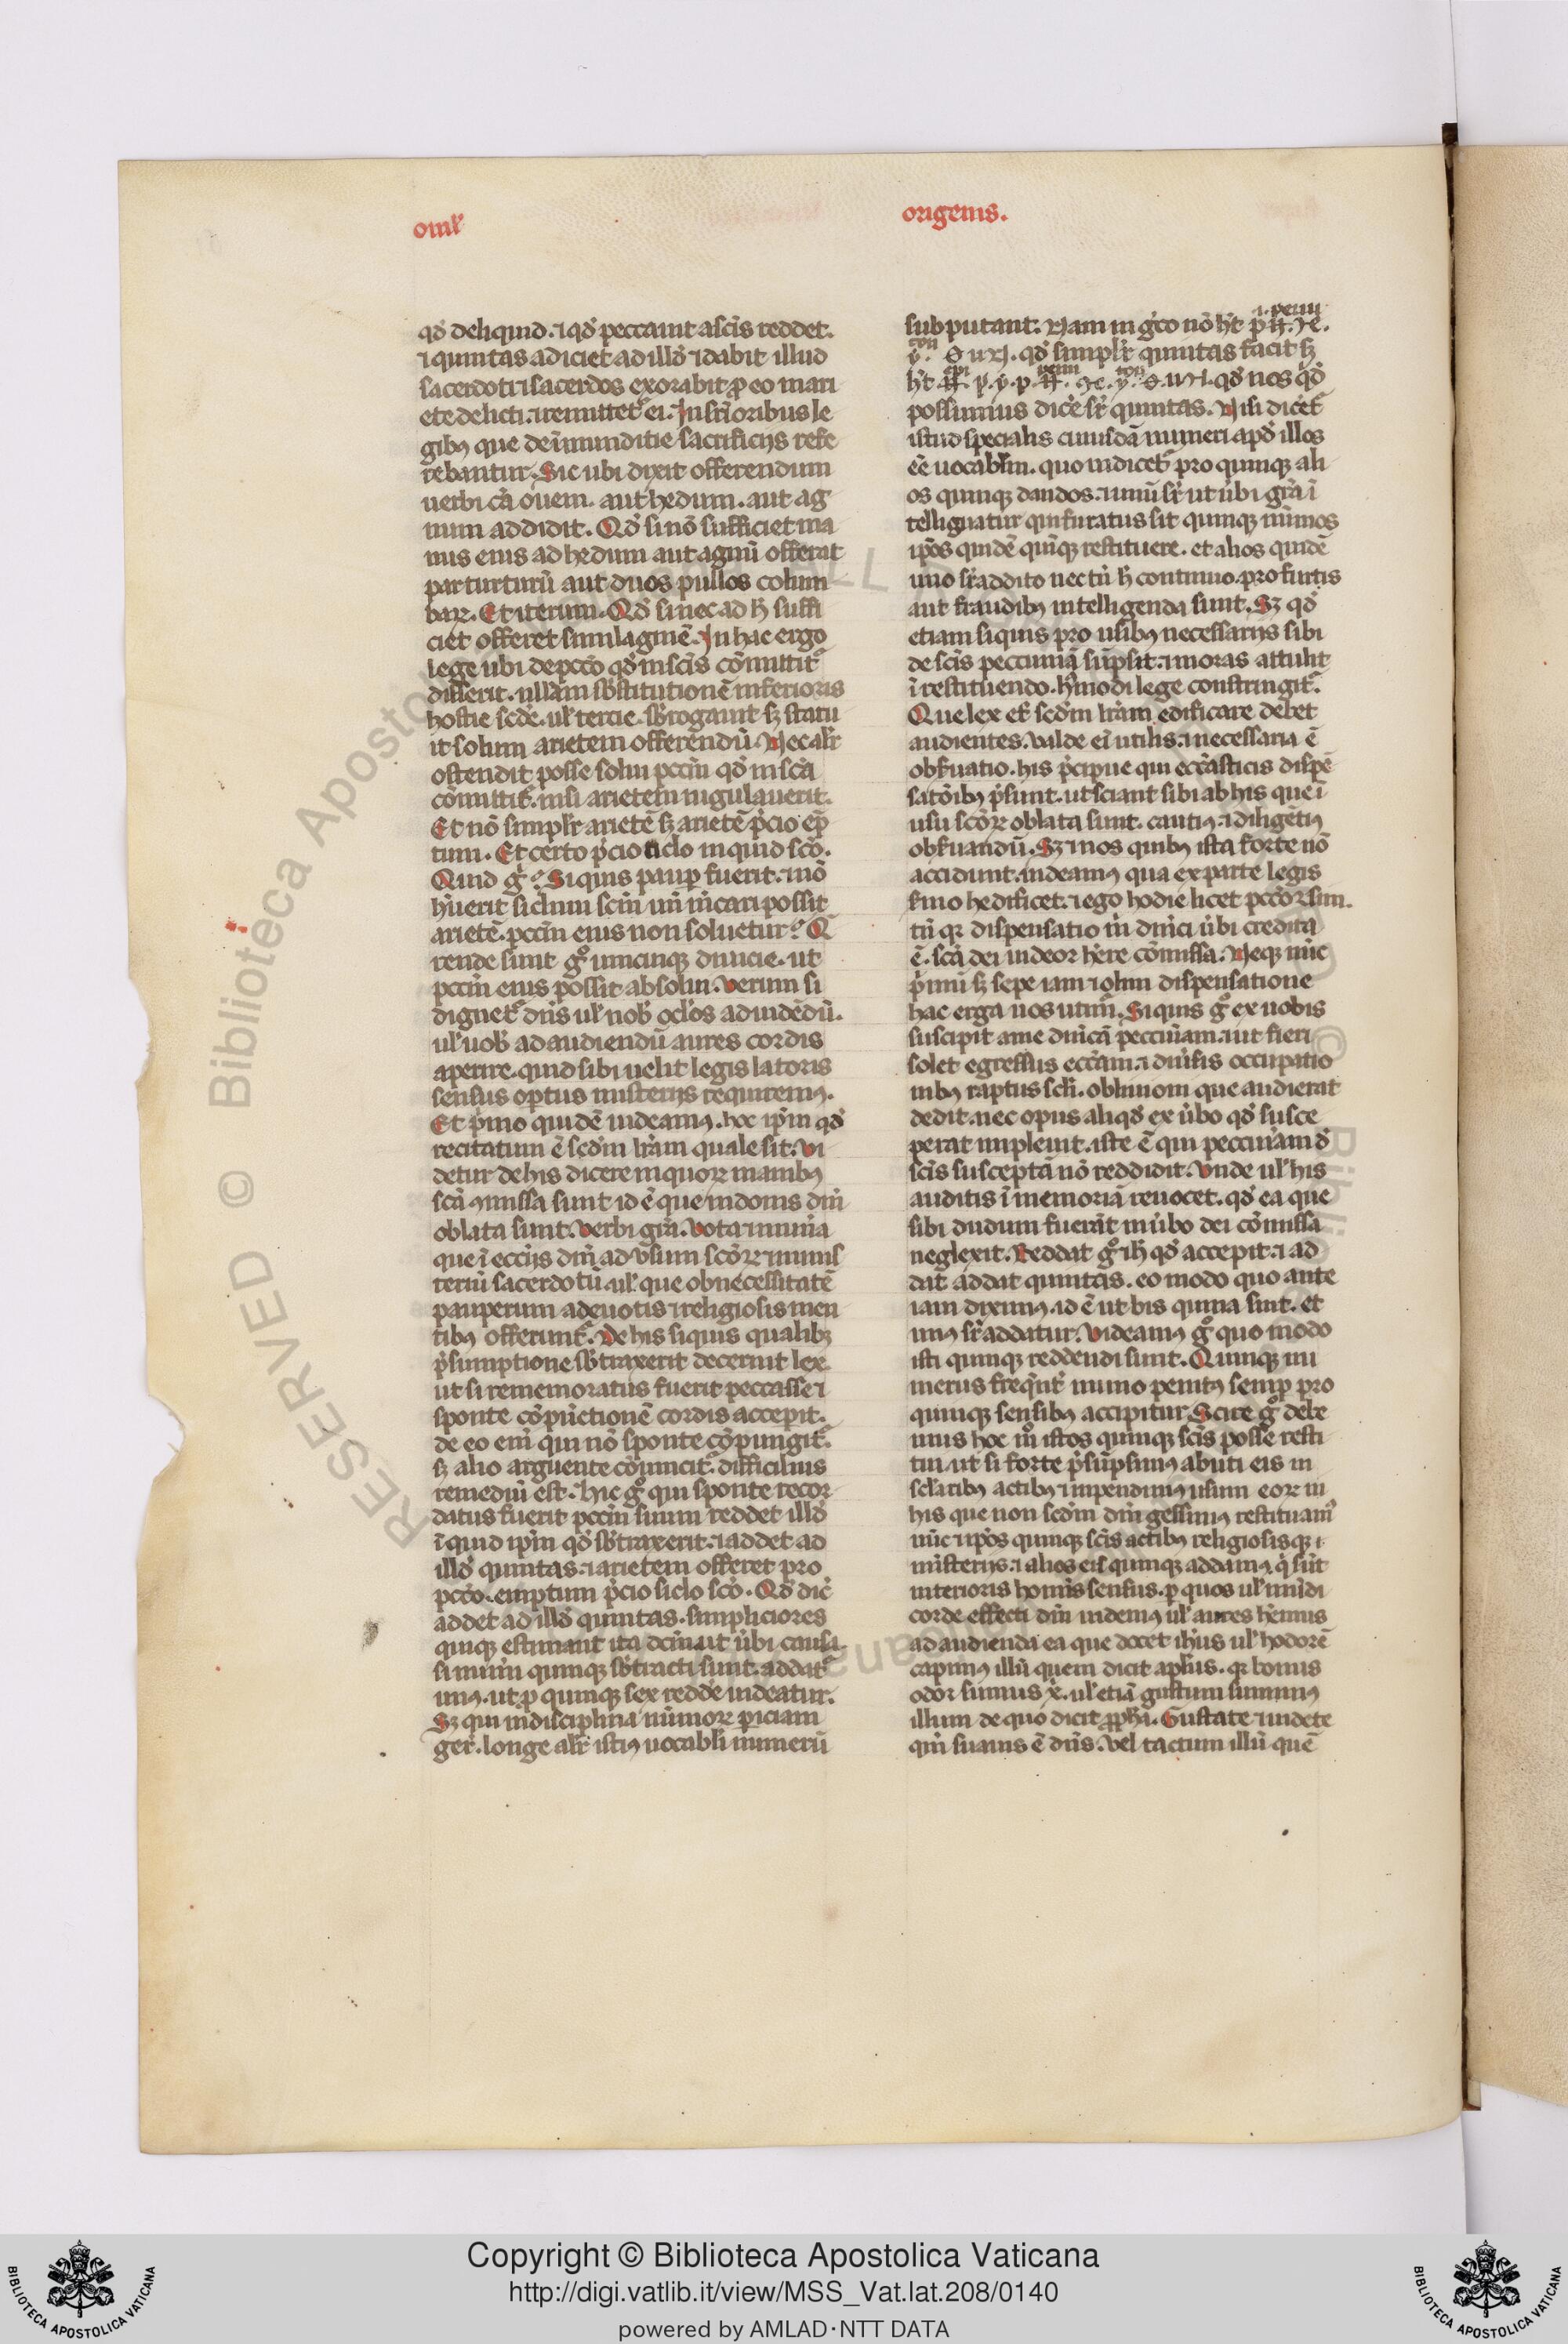 omł
origenis.
qđ deliquid. ⁊ qđ peccauit a scīs reddet.
⁊ quintas adiciet ad illđ ⁊ dabit illud
sacerdoti ⁊ sacerdos exorabit ꝓ eo in ari
ete delicti. ⁊ remittet᷑ ei. In supioribus le
gibꝰ que de īmunditie sacrificijs refe
rebantur. Sic ubi dixit offerendum
uerbi cā ouem. aut hedum. aut ag
num addidit. Qđ si nō sufficiet ma
nus eius ad hedum aut agnū offerat
par turturū aut duos pullos colum
baꝝ. Et iterum. Qđ si nec ad ħ suffi
ciet offeret similaginē. In hac ergo
lege ubi de pccō qđ in scīs cōmittit᷑
disserit. nullam sb̄stitutionē inferioris
hostie scđe. ul' tercie. sb̄rogauit sꝫ statu
it solum arietem offerendū. Nec alr̄
ostendit posse solui pccm̄ qđ in scā
cōmittit᷑. nisi arietem iugulauerit.
Et nō simplr̄ arietē sꝫ arietē p̄cio ep̄
tum. Et certo p̄cio siclo inquid scō.
Quid g°? Si quis paup fuerit. ⁊ nō
hūerit siclum scm̄ un̄ m̄cari possit
arietē. pccm̄ eius non soluetur? Q̄
rende sunt g° unicuiqꝫ diuicie. ut
pccm̄ eius possit absolui. Verum si
dignet᷑ dn̄s ul' nob̄ oclōs ad uidēdū.
ul' uob̄ ad audiendū aures cordis
aperire. quid sibi uelit legis latoris
sensus optus misterijs requiremꝰ.
Et p̄mo quidē uideamꝰ. hoc ip̄m qđ
recitatum ē scđm lr̄am quale sit. Vi
detur de his dicere in quoꝝ manibꝰ
scā ꝯmissa sunt id ē que in donis dn̄i
oblata sunt. Verbi gr̄a. Vota ⁊ mun̄a
que ī ecc̄ijs dn̄i ad usum scōꝝ ⁊ minis
teriū sacerdotū. ul' que ob necessitatē
pauperum a deuotis ⁊ religiosis men
tibꝰ offerunt᷑. De his si quis qualibꝫ
p̄sumptione sb̄traxerit decernit lex
ut si rememoratus fuerit peccasse ⁊
sponte cōpūctionē cordis accepit.
de eo eni qui nō sponte cōpungit᷑.
sꝫ alio arguente conuincit᷑. difficilius
remediū est. Hic g° qui sponte recor
datus fuerit pccm̄ suum reddet illđ
īquid ip̄m qđ sb̄traxerit. ⁊ addet ad
illđ quintas. ⁊ arietem offeret pro
pccō. emptum p̄cio siclo scō. Qđ dic̄
addet ad illđ quintas. simpliciores
quiqꝫ estimant ita dc̄m ut ūbi causa
si nūmi quinqꝫ sb̄tracti sunt. addat᷑
unꝰ. ut p quinqꝫ sex redde uideatur.
Sꝫ qui in disciplina nūmoꝝ piciam
ger̄t. longe alr̄ istiꝰ uocabli numerū
subputant. Nam in gr̄co nō ht̄
qđ simplr̄ quintas facit sꝫ
qđ nos qđ
possumus dicē sr̄ quintas. Nisi dicet᷑
istud specialis cuiusdā numeri apđ illos
eē uocablm. quo indicet᷑ pro quinqꝫ ali
os quinqꝫ dandos. ⁊ unū sr̄ ut ūbi gr̄a ī
telliguatur qui furatus sit quinqꝫ nūmos
ip̄os quidē quīqꝫ restituere. et alios quidē
uno sr̄ addito nec tn̄ ħ continuo. pro furtis
aut fraudibꝰ intelligenda sunt. Sꝫ qđ
etiam si quis pro usibꝰ necessarijs sibi
de scīs peccuniā sūpsit. ⁊ moras attulit
ī restituendo. hꝰmodi lege constringit᷑.
Que lex et̄ scđm lr̄am edificare debet
audientes. Valde eī utilis. ⁊ necessaria ē
obs̄uatio. his p̄cipue qui ecc̄asticis dispē
satōibꝰ p̄sunt. ut sciant sibi ab his que ī
usu scōꝝ oblata sunt. cautiꝰ. ⁊ diligētiꝰ
obs̄uandū. Sꝫ ⁊ nos quibꝰ ista forte nō
accidunt. uideamꝰ qua ex parte legis
s̄mo hedificet. ⁊ ego hodie licet pccōr sim.
tn̄ qꝛ dispensatio m̄ dn̄ici ūbi credita
ē. scā dei uideor hr̄e cōmissa. Neqꝫ nūc
p̄mū sꝫ sepe iam ⁊ olim dispensatione
hac erga nos utim᷑. Si quis g° ex uobis
suscipit a me dn̄icā peccuniam. ⁊ ut fieri
solet egressus ecc̄am. ⁊ diūsis occupatio
nibꝰ raptus sclī. obliuiom que audierat
dedit. nec opus aliqđ ex ūbo qđ susce
perat impleuit. iste ē qui peccuniam đ
scīs susceptā nō reddidit. Vnde ul' his
auditis ī memoriā reuocet. qđ ea que
sibi dudum fuerāt in ūbo dei cōmissa
neglexit. Reddat g° ih̄ qđ accepit. ⁊ ad
dat addat quintas. eo modo quo ante
iam diximꝰ. id ē ut bis quina sint. et
unꝰ sr̄ addatur. Videamꝰ g° quo modo
isti quinqꝫ reddendi sunt. Quinqꝫ nu
merus freqn̄t̄ immo penitꝰ semp pro
quinqꝫ sensibꝰ accipitur. Scire g° debe
mus hoc m° istos quinqꝫ scīs posse resti
tui. ut si forte p̄sūpsimꝰ abuti eis in
sclaribꝰ actibꝰ ⁊ inpendimꝰ usum eoꝝ in
his que non scđm dm̄ gessimꝰ restituam᷑
nūc ⁊ ip̄os quinqꝫ scīs actibꝰ religiosisqꝫ ī
misterijs. ⁊ alios eis quinqꝫ addamꝰ. q̄ sūt
interioris hoīnis sensus. p quos ul' mūdi
corde effecti dm̄ uidemꝰ ul' aures hēmus
ad audienda ea que docet ih̄us ul' hodorē
capimꝰ illū quem dicit apl̄us. qꝛ bonus
odor sumus x̄. ul' etiā gustum sumimꝰ
illum de quo dicit ꝓph̄a. Gustate ⁊ uidete
qm̄ suauis ē dn̄s. Vel tactum illū quē
RESERVED © Biblioteca Apostolica Vaticana
Copyright © Biblioteca Apostolica Vaticana
http://digi.vatlib.it/view/MSS_Vat.lat.208/0140
powered by AMLAD·NTT DATA
BIBLIOTECA APOSTOLICA VATICANA
BIBLIOTECA APOSTOLICA VATICANA